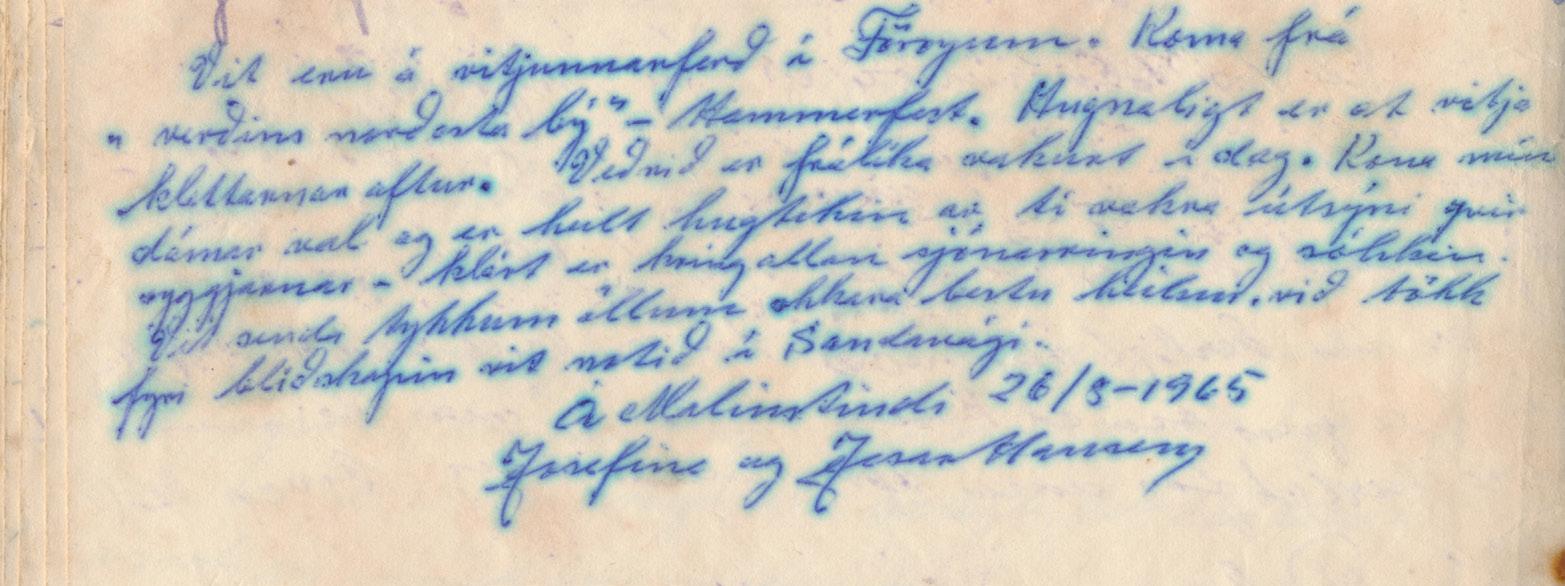 Vit eru á vitjunnarferð í Föroyum. Koma frá
„ verðins norðasta bý" – Hammerfest. Hugnaligt er at vitja
klettarnar aftur. Veðrið er frálíka vakurt í dag. Kona mín
dámar val og er heilt hugtikin av ti vakra útsýni yvir
oyggjarnar – klárt er kring allan sjónarringin og sólskin.
Vit senda tykkum öllum okkara bestu heilsur, við tökk
fyri blíðskapin vit notið í Sandavági.
Á Malinstindi 26/8-1965
Josefine og Hansen